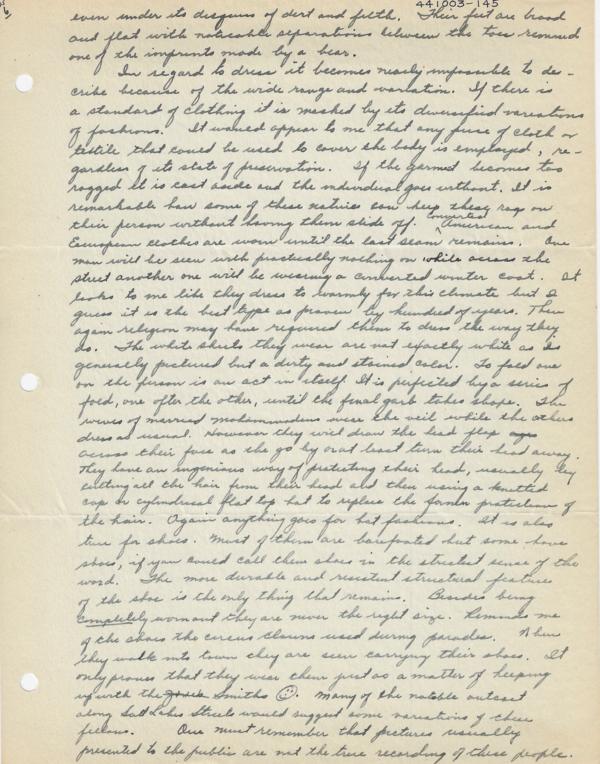 441003-145
even under its disguise of dirt and filth. Their feet are broad
and flat with noticeable separations between the toes remind
one of the imprints made by a bear.
In regard to dress it becomes nearly impossible to de-
cribe because of the wide range and variation. If there is
a standard of clothing it is masked by its diversified variations
of fashions. It would appear to me that any piece of cloth or
textile that could be used to cover the body is employed, re-
gardless of its state of preservation. If the garment becomes too
ragged it is cast aside and the individual goes without. It is
remarkable how some of these natives can keep these rags on
their person without having them slide off. converted American and
European clothes are worn until the last seam remains. One
man will be seen with practically nothing on while across the
street another one will be wearing a converted winter coat. It
looks to me like they dress to warmly for this climate but I
guess it is the best type as proven by hundred of years. Then
again religion may have required them to dress the way they
do. The white skirts they wear are not exactly white as is
generally pictured but a dirty and stained color. To fold one
on the person is an act in itself. It is perfected by a series of
fold, one after the other, until the final garb takes shape. The
wives of married mohammadens wear the veil while the others
dress as usual. However they will draw the head flap
across their face as she go by or at least turn their head away.
They have an ingenious way of protecting their head, usually by
cutting all the hair from their head and then using a knitted
cap or cylindrical flat top hat to replace the former protection of
the hair. Again anything goes for hat fashions. It is also
true for shoes. Most of them are barefooted but some have
shoes, if you could call them shoes in the strictest sense of the
word. The more durable and resistent structural features
of the shoe is the only thing that remains. Besides being
completely wornout they are never the right size. Reminds me
of the shoes the circus clowns used during parades. When
they walk into town they are seen carrying their shoes. It
only proves that they wear them just as a matter of keeping
up with the Smiths ☺. Many of the notable outcast
along Salt Lakes Streets would suggest some variations of these
fellows. One must remember that pictures usually
presented to the public are not the true recording of these people.